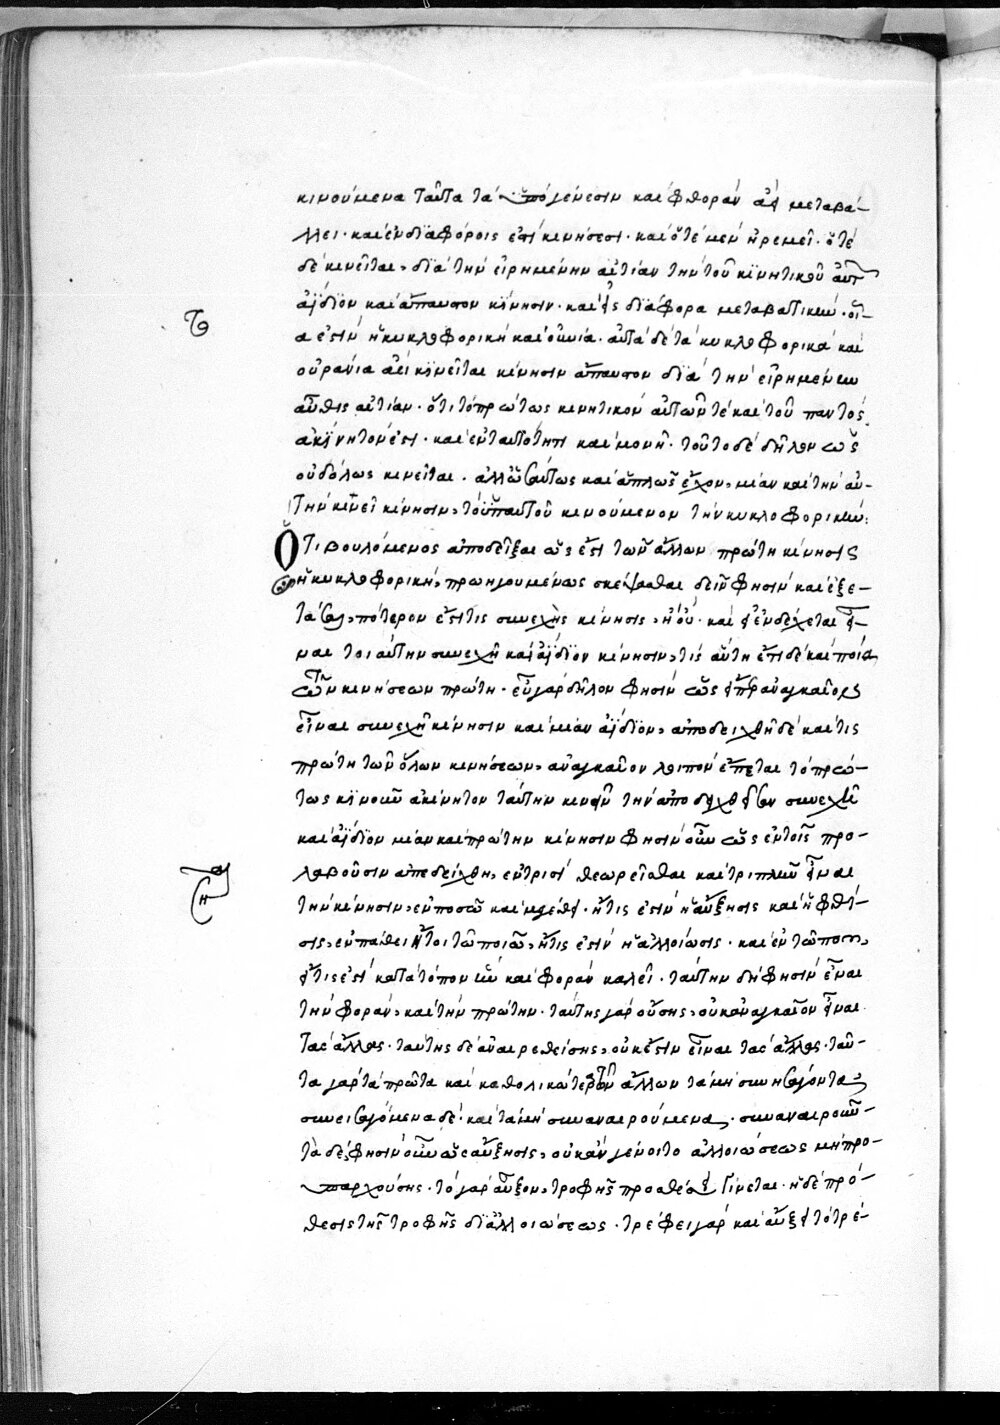 κινούμενα ταῦτα τὰ ὑπὸ γένεσιν καὶ φθορὰν ἀεὶ μεταβά-
λλει· καὶ ἐν διαφόροις ἐστὶ κινήσεσι· καὶ ὁτὲ μὲν ἠρεμεῖ· ὁτὲ
δὲ κινεῖται, διὰ τὴν εἰρημένην αἰτίαν τὴν τοῦ κινητικοῦ αὐτ
ἀΐδιον καὶ ἄπαυστον κίνησιν· καὶ διάφορα μεταβατικὴν· οἵ-
α ἐστὶν ἡ κυκλοφορικὴ καὶ οὐρανία· αὐτὰ δὲ τὰ κυκλοφορικὰ καὶ
οὐράνια ἀεὶ κινεῖται κίνησιν ἄπαυστον διὰ τὴν εἰρημένην
αὖθις αἰτίαν· ὅτι τὸ πρώτως κινητικὸν αὐτῶν τὲ καὶ τοῦ παντός,
ἀκίνητόν ἐστι· καὶ ἐν ταυτότητι καὶ μονῇ· τοῦτο δὲ δῆλον ὡς
οὐδόλως κινεῖται· ἀλλ' ὡσαύτως καὶ ἁπλῶς ἔχον, μίαν καὶ τὴν αὐ-
τὴν κινεῖ κίνησιν, τὸ ὑπ' αὐτοῦ κινούμενον τὴν κυκλοφορικήν:
Ὅτι βουλόμενος ἀποδεῖξαι ὡς ἔστι τῶν ἄλλων πρώτη κίνησις
ἡ κυκλοφορική, προηγουμένως σκέψασθαι δεῖν φησὶν καὶ ἐξε-
τάσαι, πότερον ἔστι τις συνεχὴς κίνησις, ἢ οὔ· καὶ εἰ ἐνδέχεται εἶ-
ναι τοιαύτην συνεχῆ καὶ ἀΐδιον κίνησιν, τίς αὕτη ἔτι δὲ καὶ ποία
τῶν κινήσεων πρώτη· εὖ γὰρ δῆλον φησὶν ὡς εἴπερ ἀναγκαῖον
εἶναι συνεχῆ κίνησιν καὶ μίαν ἀΐδιον, ἀποδειχθῇ δὲ καὶ τίς
πρώτη τῶν ὅλων κινήσεων, ἀναγκαῖον λοιπὸν ἕπεται τὸ πρώ-
τως κινοῦν ἀκίνητον ταύτην κινεῖν τὴν ἀποδειχθεῖσαν συνεχῆ
καὶ ἀΐδιον μίαν καὶ πρώτην κίνησιν φησὶν οὖν ὡς ἐν τοῖς προ-
λαβοῦσιν ἀπεδείχθη, ἐν τρισὶ θεωρεῖσθαι καὶ τριπλῆν εἶναι
τὴν κίνησιν, ἐν ποσῶ καὶ μεγέθει· ἥτις ἐστὶν ἡ αὔξησις καὶ ἡ φθί-
σις, ἐν πάθει ἤτοι τῶ ποιῶ, ἥτις ἐστὶν ἡ ἀλλοίωσις· καὶ ἐν τῶ ποῦ,
ἥτις ἐστὶ κατὰ τόπον ἣν καὶ φορὰν καλεῖ· ταύτην δὴ φησὶν εἶναι
τὴν φορὰν, καὶ τὴν πρώτην· ταύτης γὰρ οὔσης, οὐκ ἀναγκαῖον εἶναι
τὰς ἄλλας· ταύτης δὲ ἀναιρεθείσης, οὐκ ἔστιν εἶναι τὰς ἄλλας· ταῦ-
τα γὰρ τὰ πρῶτα καὶ καθολικώτερα τῶν ἄλλων τὰ μὴ συνησάγοντα,
συνεισαγόμενα δέ· καὶ τὰ μὴ συναναιρούμενα, συναναιροῦν-
τα δέ, φησὶν οὖν ὡς αὔξησις, οὐκ ἂν γένοιτο ἀλλοιώσεως μὴ προ-
ϋπαρχούσης· τὸ γὰρ αὖξον, τροφῆς προσθέσει γίνεται· ἡ δὲ πρό-
θεσις τῆς τροφῆς δι' ἀλλοιώσεως· τρέφει γὰρ καὶ αὔξει τὸ τρέ-